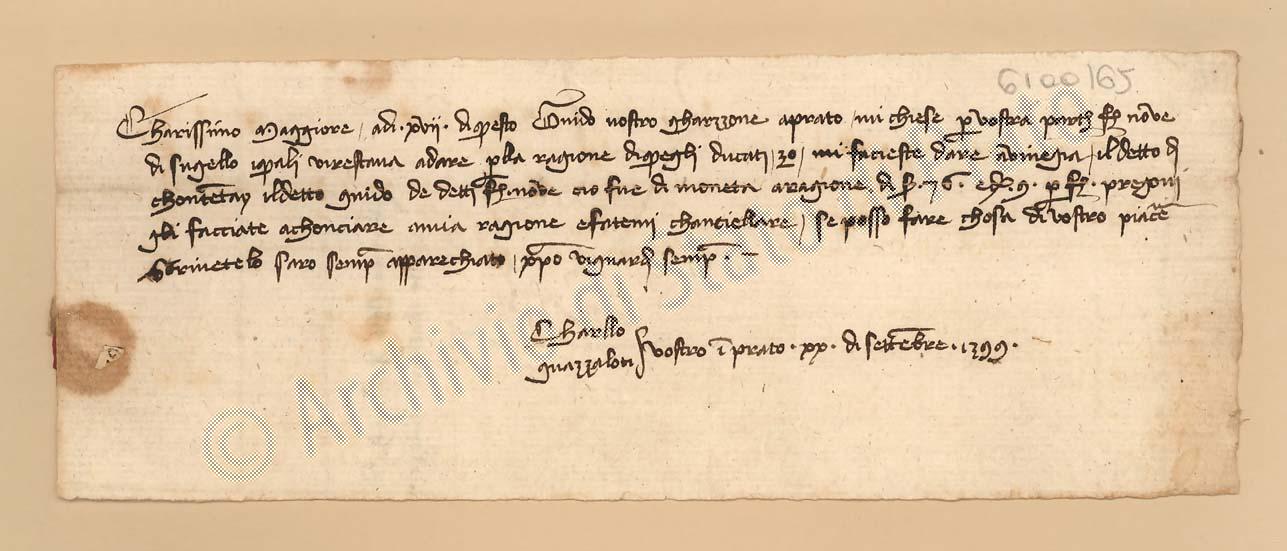 6100165
Charissimo Maggiore / adi .xvii. di questo Guido vostro gharzzone aprato / mi chiese p vostra parte fi. nove
di sugello i quali vi restava adare p lla ragione di quegli ducati / 30 / mi facieste dare a vinegia / il detto di
chontetay il detto guido de detti fi. nove cio fue di moneta aragione di s. 76. e d. 9. p fi. preghovi
gli facciate achonciare amia ragione e fatemi chanciellare / se posso fare chosa di vostro piacere
Scrivetelo saro semp apparechiato / xpo vi guardi semp. —
Charllo
guazzaloti vostro i prato . xx. di settebre . 1399.
© Archivio di Stato di